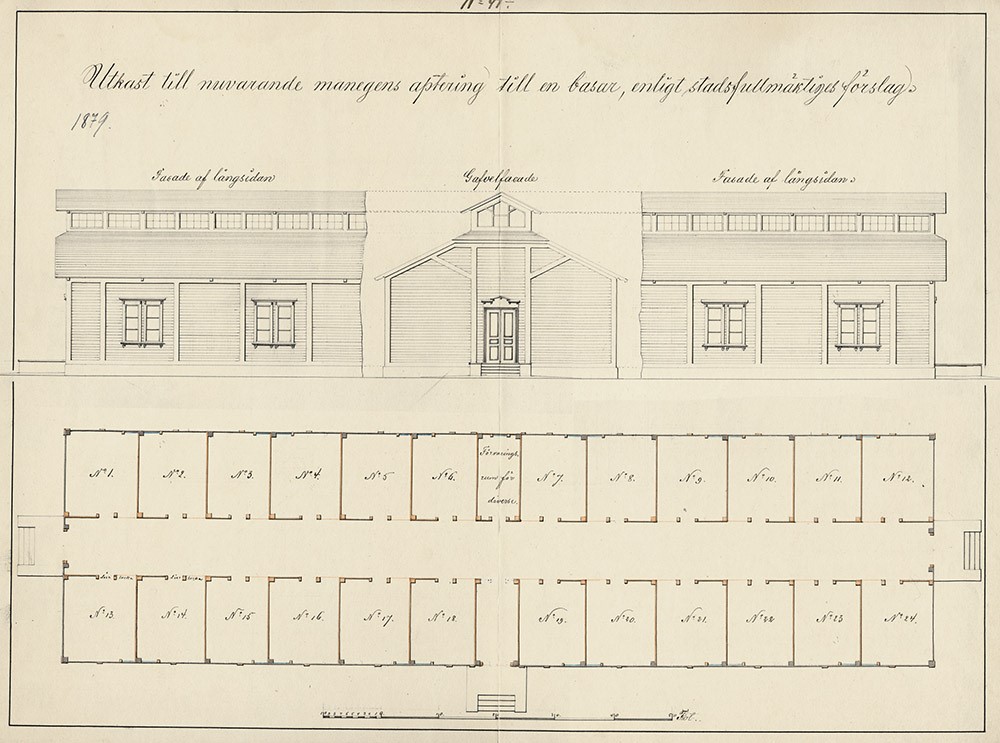 No 41.
Utkast till nuvarande manegens aptering till en basar, enligt stadsfullmäktiges förslag.
1879.
Facade af långsidan
Gafvelfacade
Facade af långsidan.
No 1.
No 2.
No 3.
No 4.
No 5
No 6.
Förvarings
rum för
diverse.
No 7.
No 8.
No 9.
No 10.
No 11.
No 12.
No 13.
No 14.
No 15
No 16.
No 17.
No 18.
No 19.
No 20.
No 21.
No 22
No 23
No 24.
Fot.